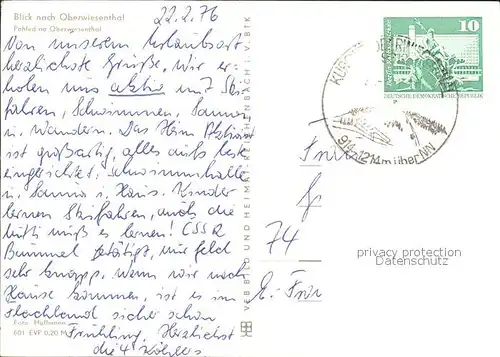 Blick nach Oberwiesenthal
Pohled na Oberwiesenthal
22.2.76
Von unserem Urlaubsort
herzlichste Grüße. Wir er-
holen uns aktiv mit Ski-
fahren, Schwimmen, Sauna
u. Wandern. Das Heim
ist großartig, alles aufs beste
eingerichtet, Schwimmhalle
u. Sauna i. Haus. Kinder
lernen Skifahren, auch die
muß es lernen! ČSSR
Bummel getätigt, nur Geld
sehr knapp. Wenn wir nach
Hause kommen, ist es im
Flachland sicher schon
Frühling. Herzlichst
die 4 Köhlers
Foto: Hoffmann
EVP 0,20 M
VEB BILD UND HEIMAT REICHENBACH I. V. BTK
10
DEUTSCHE DEMOKRATISCHE REPUBLIK
KURORT
914-1214 m über NN
74
privacy protection
Datenschutz